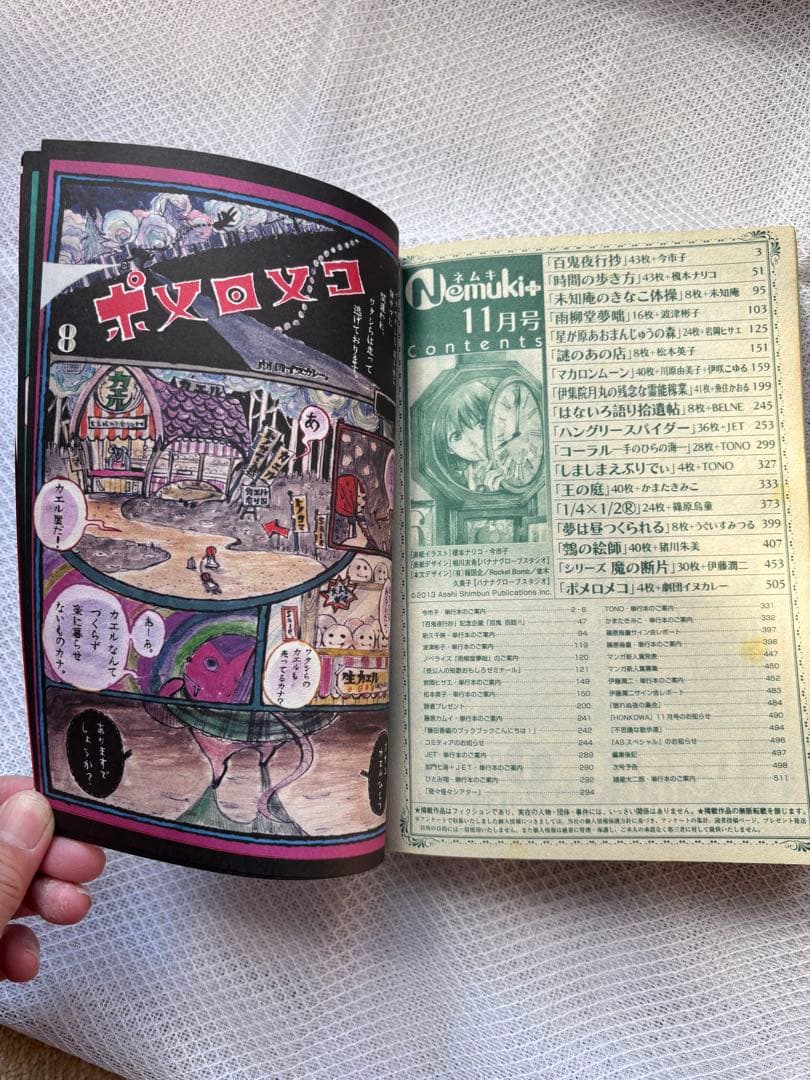 ポメロメコ
8
劇団イヌカレー。
ワタシらは走って
逃げております
カエル
カエル
あ
カエル屋だ!
あーあ。
カエルなんて
つくらず
楽に暮らせ
ないものカナ。
ワタシらの
カエルも
売ってるカナ?
生カエル
ありますで
しょうか?
ネムキ
Nemuki+
11月号
Contents
「百鬼夜行抄」43枚+今市子 3
「時間の歩き方」43枚+榎本ナリコ 51
「未知庵のきなこ体操」8枚+未知庵 95
「雨柳堂夢咄」16枚+波津彬子 103
「星が原あおまんじゅうの森」24枚+岩岡ヒサエ 125
「謎のあの店」8枚+松本英子 151
「マカロンムーン」40枚+川原由美子/伊咲こゆる 159
「伊集院月丸の残念な霊能稼業」41枚+魚住かおる 199
「はないろ語り拾遺帖」8枚+BELNE 245
「ハングリースパイダー」36枚+JET 253
「コーラル-手のひらの海-」28枚+TONO 299
「しましまえぶりでぃ」4枚+TONO 327
「王の庭」40枚+かまたきみこ 333
「1/4×1/2Ⓡ」24枚+篠原烏童 373
「夢は昼つくられる」8枚+うぐいすみつる 399
「鶚の絵師」40枚+猪川朱美 407
「シリーズ 魔の断片」30枚+伊藤潤二 453
「ポメロメコ」4枚+劇団イヌカレー 505
[表紙イラスト]榎本ナリコ・今市子
[表紙デザイン]相川友希[バナナグローブスタジオ]
[本文デザイン](有)箱団企/Rocket Bomb/並木
久美子[バナナグローブスタジオ]
©2013 Asahi Shimbun Publications Inc.
今市子・単行本のご案内 2・6
「百鬼夜行抄」記念企画「百鬼 百話!!」 47
新久千映・単行本のご案内 94
波津彬子・単行本のご案内 119
ノベライズ「雨柳堂夢咄」のご案内 120
「怪公人の短歌おもしろゼミナール」 121
岩岡ヒサエ・単行本のご案内 149
松本英子・単行本のご案内 150
読者プレゼント 240
藤原カムイ・単行本のご案内 241
「藤田香織のブックブックこんにちは!」 242
コミティアのお知らせ 244
JET・単行本のご案内 289
加門七海+JET・単行本のご案内 290
ひとみ翔・単行本のご案内 292
「奇々怪々シアター」 294
TONO・単行本のご案内 331
かまたきみこ・単行本のご案内 332
篠原烏童サイン会レポート 397
篠原烏童・単行本のご案内 398
マンガ新人賞発表 447
マンガ新人賞募集 450
伊藤潤二・単行本のご案内 452
伊藤潤二サイン会レポート 483
「眠れぬ夜の集会」 484
「HONKOWA」11月号のお知らせ 490
「不思議な散歩道」 494
「ASスペシャル」のお知らせ 496
編集後記 497
次号予告 498
諸星大二郎・単行本のご案内 511
★掲載作品はフィクションであり、実在の人物・団体・事件には、いっさい関係はありません。★掲載作品の無断転載を禁じます。
※アンケートで収集いたしました個人情報につきましては、当社の個人情報保護方針に基づき、アンケートの集計、読者投稿ページ、プレゼント発送
以外の目的には一切使用いたしません。また個人情報は厳重に管理・保護し、ご本人の承諾なく第三者に対して提供いたしません。